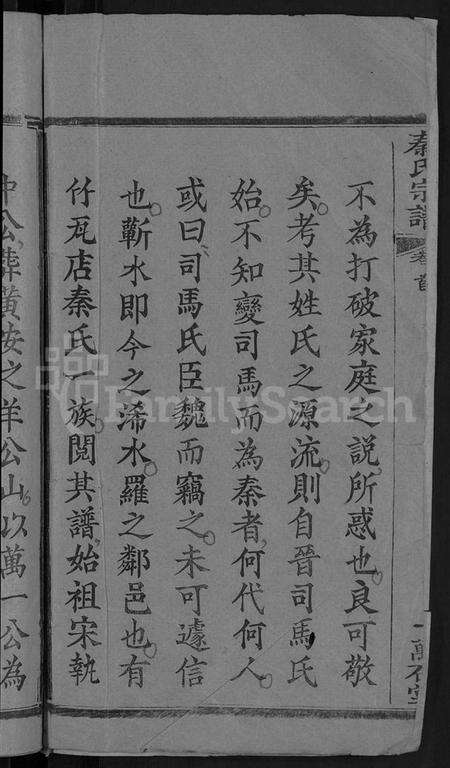 秦氏宗譜
卷首
不為打破家庭之說所惑也良可敬
矣考其姓氏之源流則自晉司馬氏
始不知變司馬而為秦者何代何人
或曰司馬氏臣魏而竊之未可遽信
也蘄水即今之浠水羅之鄰邑也有
竹瓦店秦氏一族閱其譜始祖宋執
中公葬黃安之羊公山以萬一公為
FamilySearch